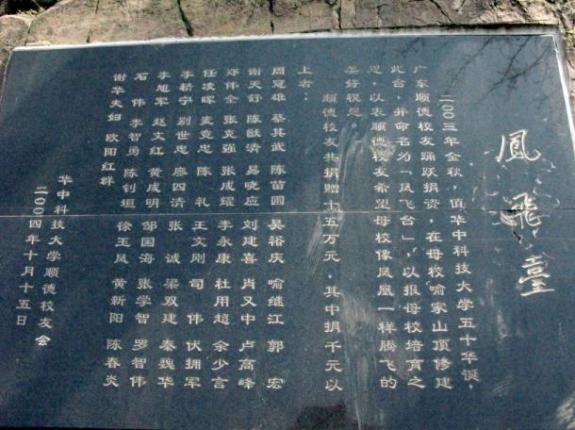 鳳飛臺
二〇〇三年金秋，值华中科技大学五十华诞，
广东顺德校友踊跃捐资，在母校喻家山顶修建
此台，并命名为「凤飞台」，以报母校培育之
恩，以表顺德校友希望母校像凤凰一样腾飞的
美好祝愿。
顺德校友共捐赠十五万元，其中捐千元以
上者：
周冠雄 蔡其武 陈苗圃 吴裕庆 喻继江 郭 宏
谢天舒 陈继清 易晓应 刘建喜 肖又中 卢高峰
郑伟全 张克强 张成耀 李永康 杜用超 余少言
任凌晖 麦竞忠 陈 礼 王文刚 司 伟 伏拥军
李耕宁 别世忠 廖四清 张 诚 梁双建 秦魏华
李旭军 赵文红 黄成明 邹国海 张学智 罗智伟
石 伟 李智勇 陈钊垣 徐王凤 黄新阳 陈春炎
谢华夫妇 欧阳红
华中科技大学顺德校友会
二〇〇四年十月十五日